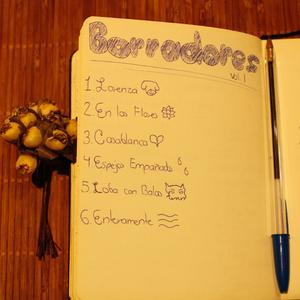 Borradores
Vol. 1
1. Lorenza
2. En las Flores
3. Casablanca
4. Espejos Empañados
5. Loba con Botas
6. Enteramente